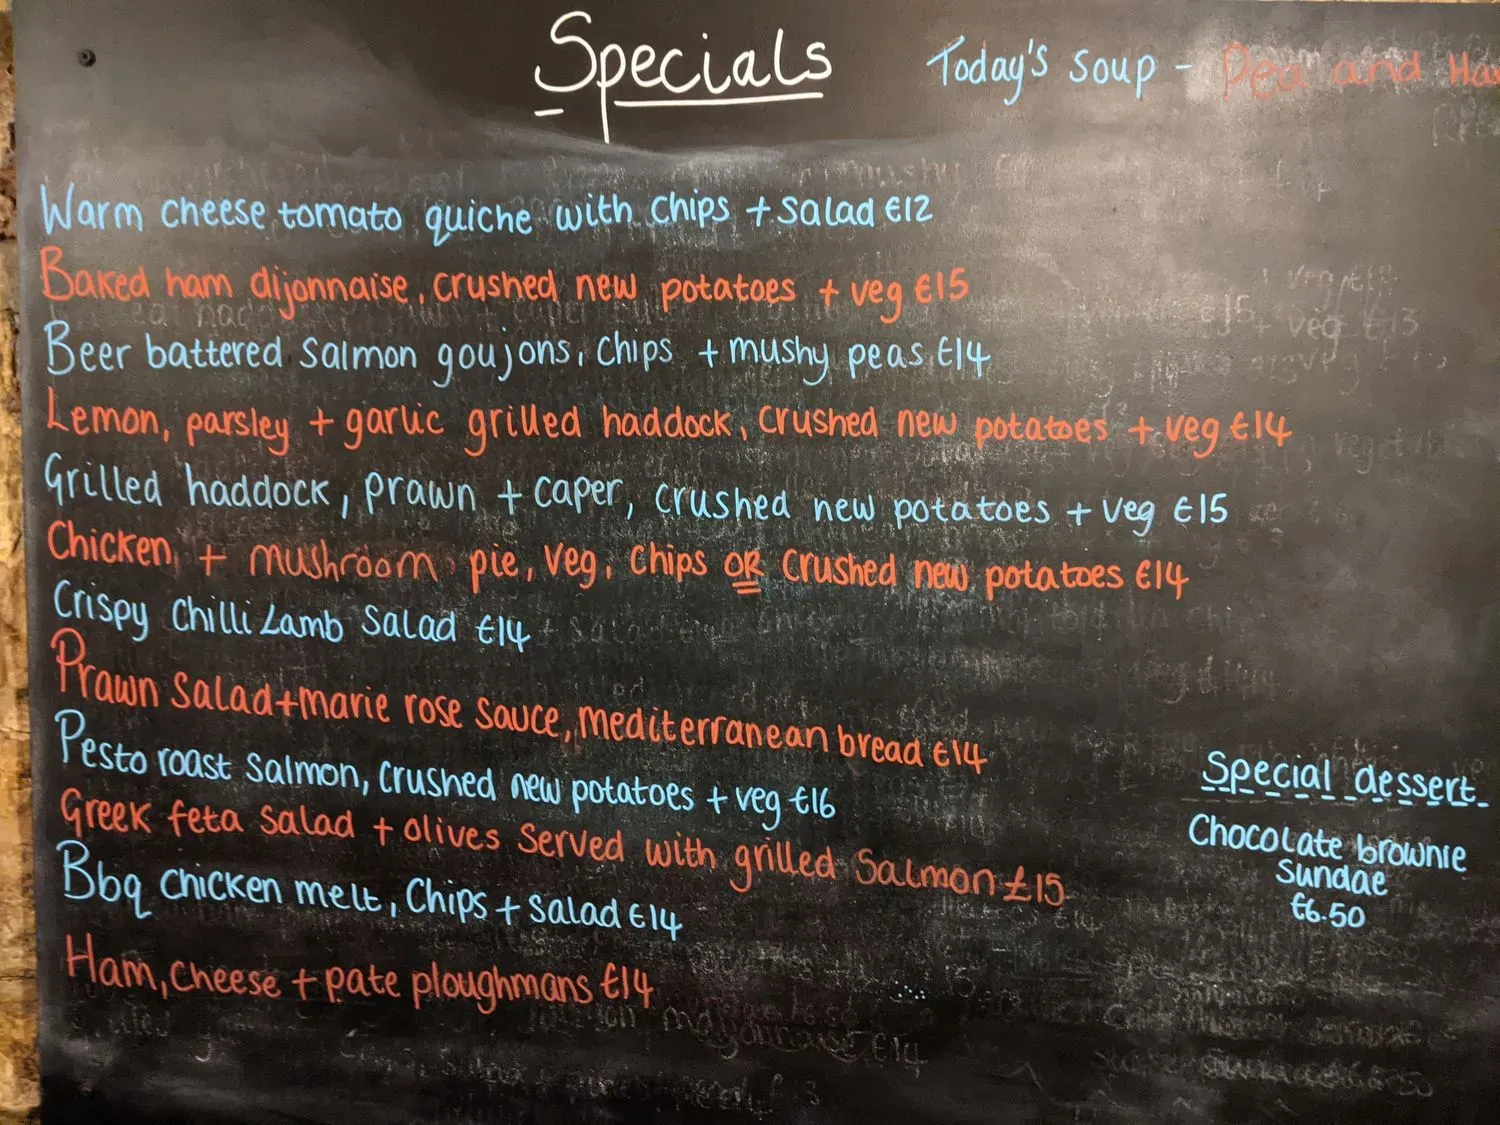 Specials
Today's Soup - Pea and
Warm cheese tomato quiche with chips + salad £12
Baked ham dijonnaise, crushed new potatoes + veg £15
Beer battered salmon goujons, chips + mushy peas £14
Lemon, parsley + garlic grilled haddock, crushed new potatoes + veg £14
Grilled haddock, prawn + caper, crushed new potatoes + veg £15
Chicken + mushroom pie, veg, chips OR crushed new potatoes £14
Crispy chilli Lamb salad £14
Prawn salad + marie rose sauce, mediterranean bread £14
Pesto roast salmon, crushed new potatoes + veg £16
Greek feta salad + olives served with grilled salmon £15
Bbq chicken melt, chips + salad £14
Ham, cheese + pate ploughmans £14
Special dessert
Chocolate brownie
Sundae
£6.50